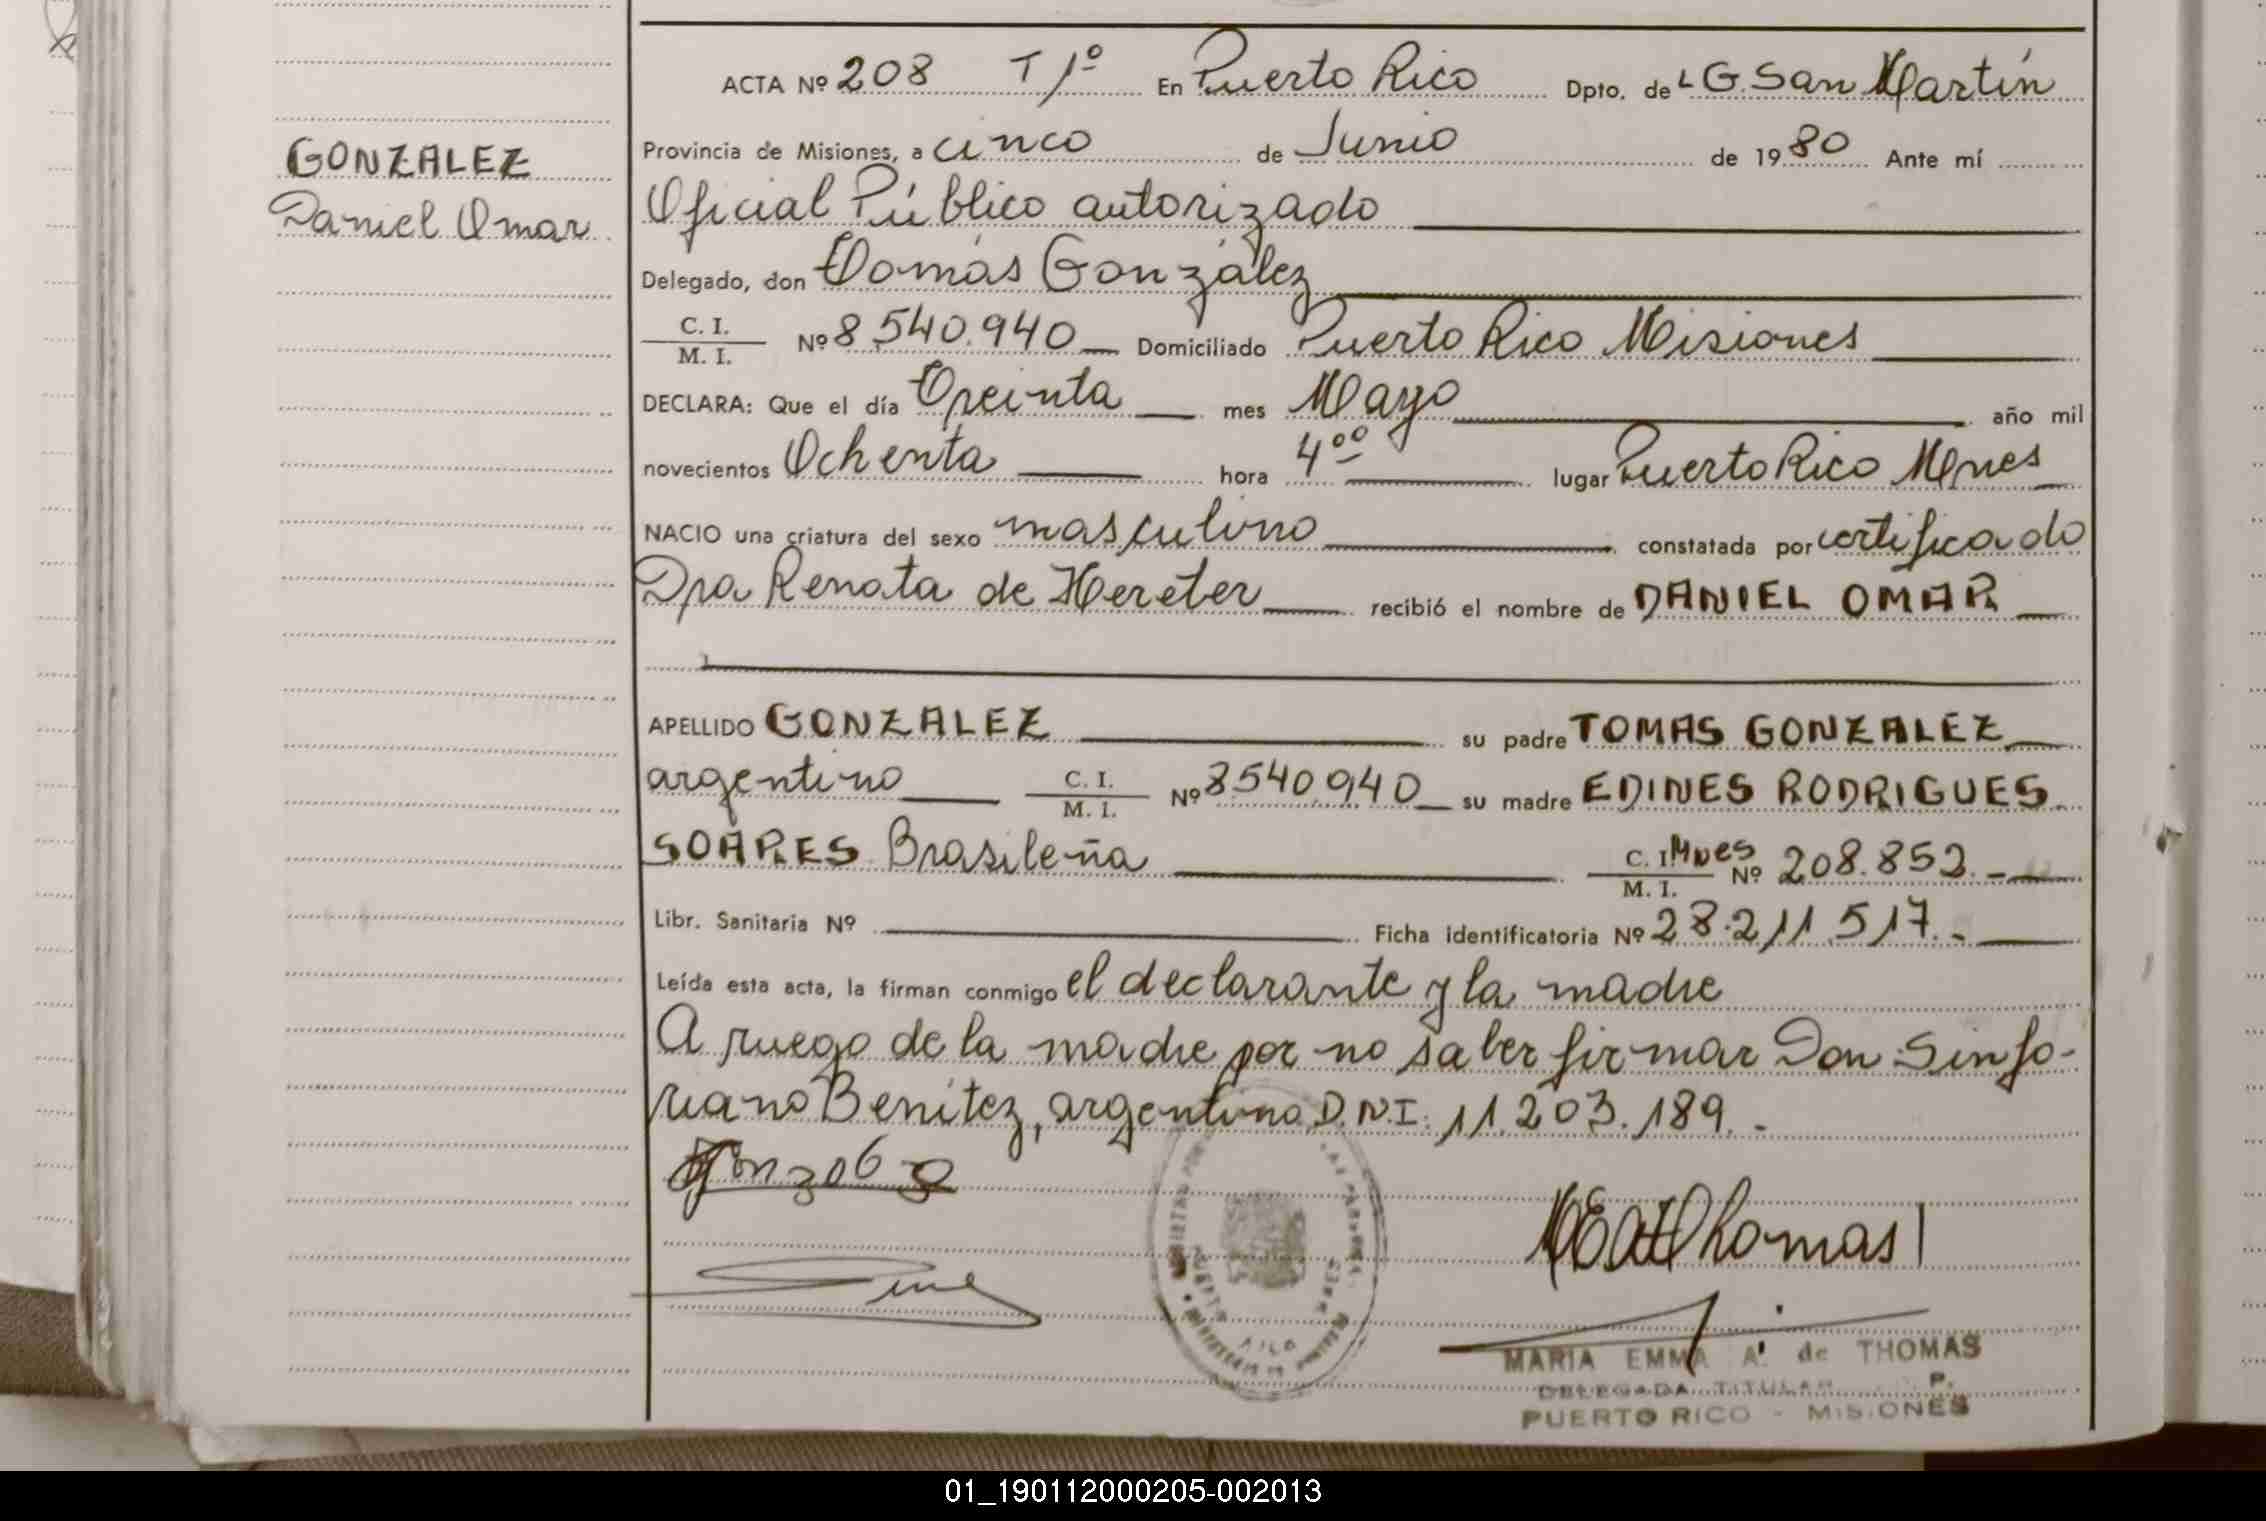 ACTA Nº 208 T 1º En Puerto Rico Dpto. de L G. San Martín
Provincia de Misiones, a cinco de Junio de 1980 Ante mí
GONZALEZ
Daniel Omar
Oficial Público autorizado
Delegado, don Tomás González
C. I. / M. I. Nº 8.540.940 Domiciliado Puerto Rico Misiones
DECLARA: Que el día Treinta mes Mayo año mil
novecientos Ochenta hora 4ºº lugar Puerto Rico Mnes
NACIO una criatura del sexo masculino constatada por certificado
Dra Renata de Hereter recibió el nombre de DANIEL OMAR
APELLIDO GONZALEZ su padre TOMAS GONZALEZ
argentino C. I. / M. I. Nº 8.540.940 su madre EDINES RODRIGUES
SOARES Brasileña C. I. Mnes / M. I. Nº 208.852.-
Libr. Sanitaria Nº Ficha Identificatoria Nº 28.211.517.-
Leída esta acta, la firman conmigo el declarante y la madre
A ruego de la madre por no saber firmar Don Sinfo-
riano Benítez, argentino D.N.I. 11.203.189.-
MEAdThomas
MARIA EMMA A. de THOMAS
DELEGADA TITULAR P.
PUERTO RICO - MISIONES
01_190112000205-002013